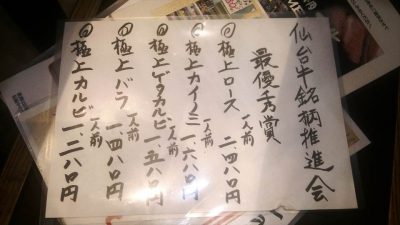 仙台牛銘柄推進会
最優秀賞
◎極上ロース 一人前 二、四八〇円
◎極上カイノミ 一人前 一、六八〇円
◎極上ゲタカルビ 一人前 一、五八〇円
◎極上バラ 一人前 一、四八〇円
◎極上カルビ 一人前 一、二八〇円